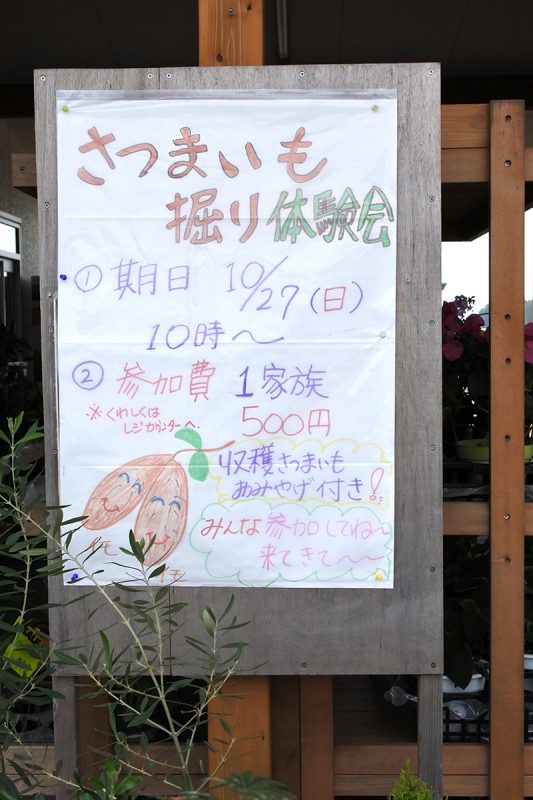 さつまいも
掘り体験会
① 期日 10/27(日)
10時〜
② 参加費 1家族
500円
※くわしくは
レジカウンターへ.
収穫さつまいも
おみやげ付き!
みんな参加してね〜
来てきて〜〜
イモ
イモ